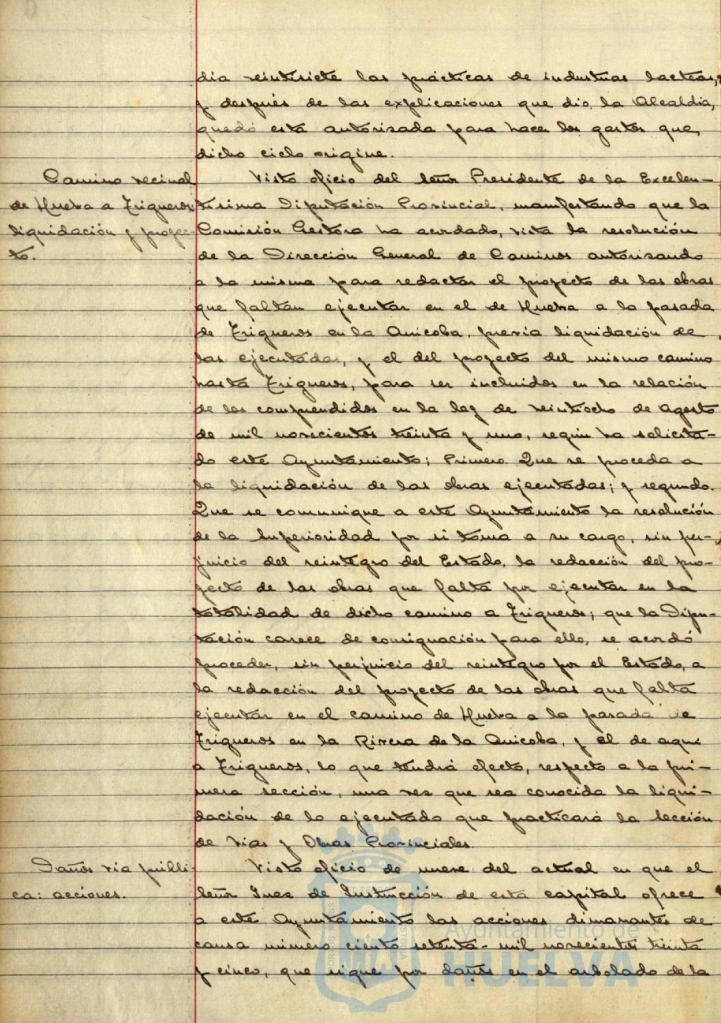 día veintisiete las prácticas de industrias lácteas,
y después de las explicaciones que dio la Alcaldía,
quedó esta autorizada para hacer los gastos que
dicho ciclo origine.
Camino vecinal
de Huelva a Trigueros
liquidación y proyec-
to.
Visto oficio del señor Presidente de la Excelen-
tísima Diputación Provincial, manifestando que la
Comisión Gestora ha acordado, vista la resolución
de la Dirección General de Caminos autorizando
a la misma para redactar el proyecto de las obras
que faltan ejecutar en el de Huelva a la pasada
de Trigueros en la Anicoba, previa liquidación de
las ejecutadas, y el del proyecto del mismo camino
hasta Trigueros, para ser incluidos en la relación
de los comprendidos en la ley de veintiocho de Agosto
de mil novecientos treinta y uno, según ha solicita-
do este Ayuntamiento; Primero Que se proceda a
la liquidación de las obras ejecutadas; y segundo.
Que se comunique a este Ayuntamiento la resolución
de la Superioridad por si toma a su cargo, sin per-
juicio del reintegro del Estado, la redacción del pro-
yecto de las obras que falta por ejecutar en la
totalidad de dicho camino a Trigueros; que la Dipu-
tación carece de consignación para ello, se acordó
proceder, sin perjuicio del reintegro por el Estado, a
la redacción del proyecto de las obras que falta
ejecutar en el camino de Huelva a la pasada de
Trigueros en la Rivera de la Anicoba, y el de aquí
a Trigueros, lo que tendrá efecto, respecto a la pri-
mera sección, una vez que sea conocida la liqui-
dación de lo ejecutado que practicará la Sección
de Vías y Obras Provinciales.
Daños vía públi-
ca: acciones.
Visto oficio de nueve del actual en que el
Señor Juez de Instrucción de esta capital ofrece
a este Ayuntamiento las acciones dimanantes de
causa número ciento setenta-mil novecientos treinta
y cinco, que sigue por daños en el arbolado de la
Ayuntamiento de
HUELVA